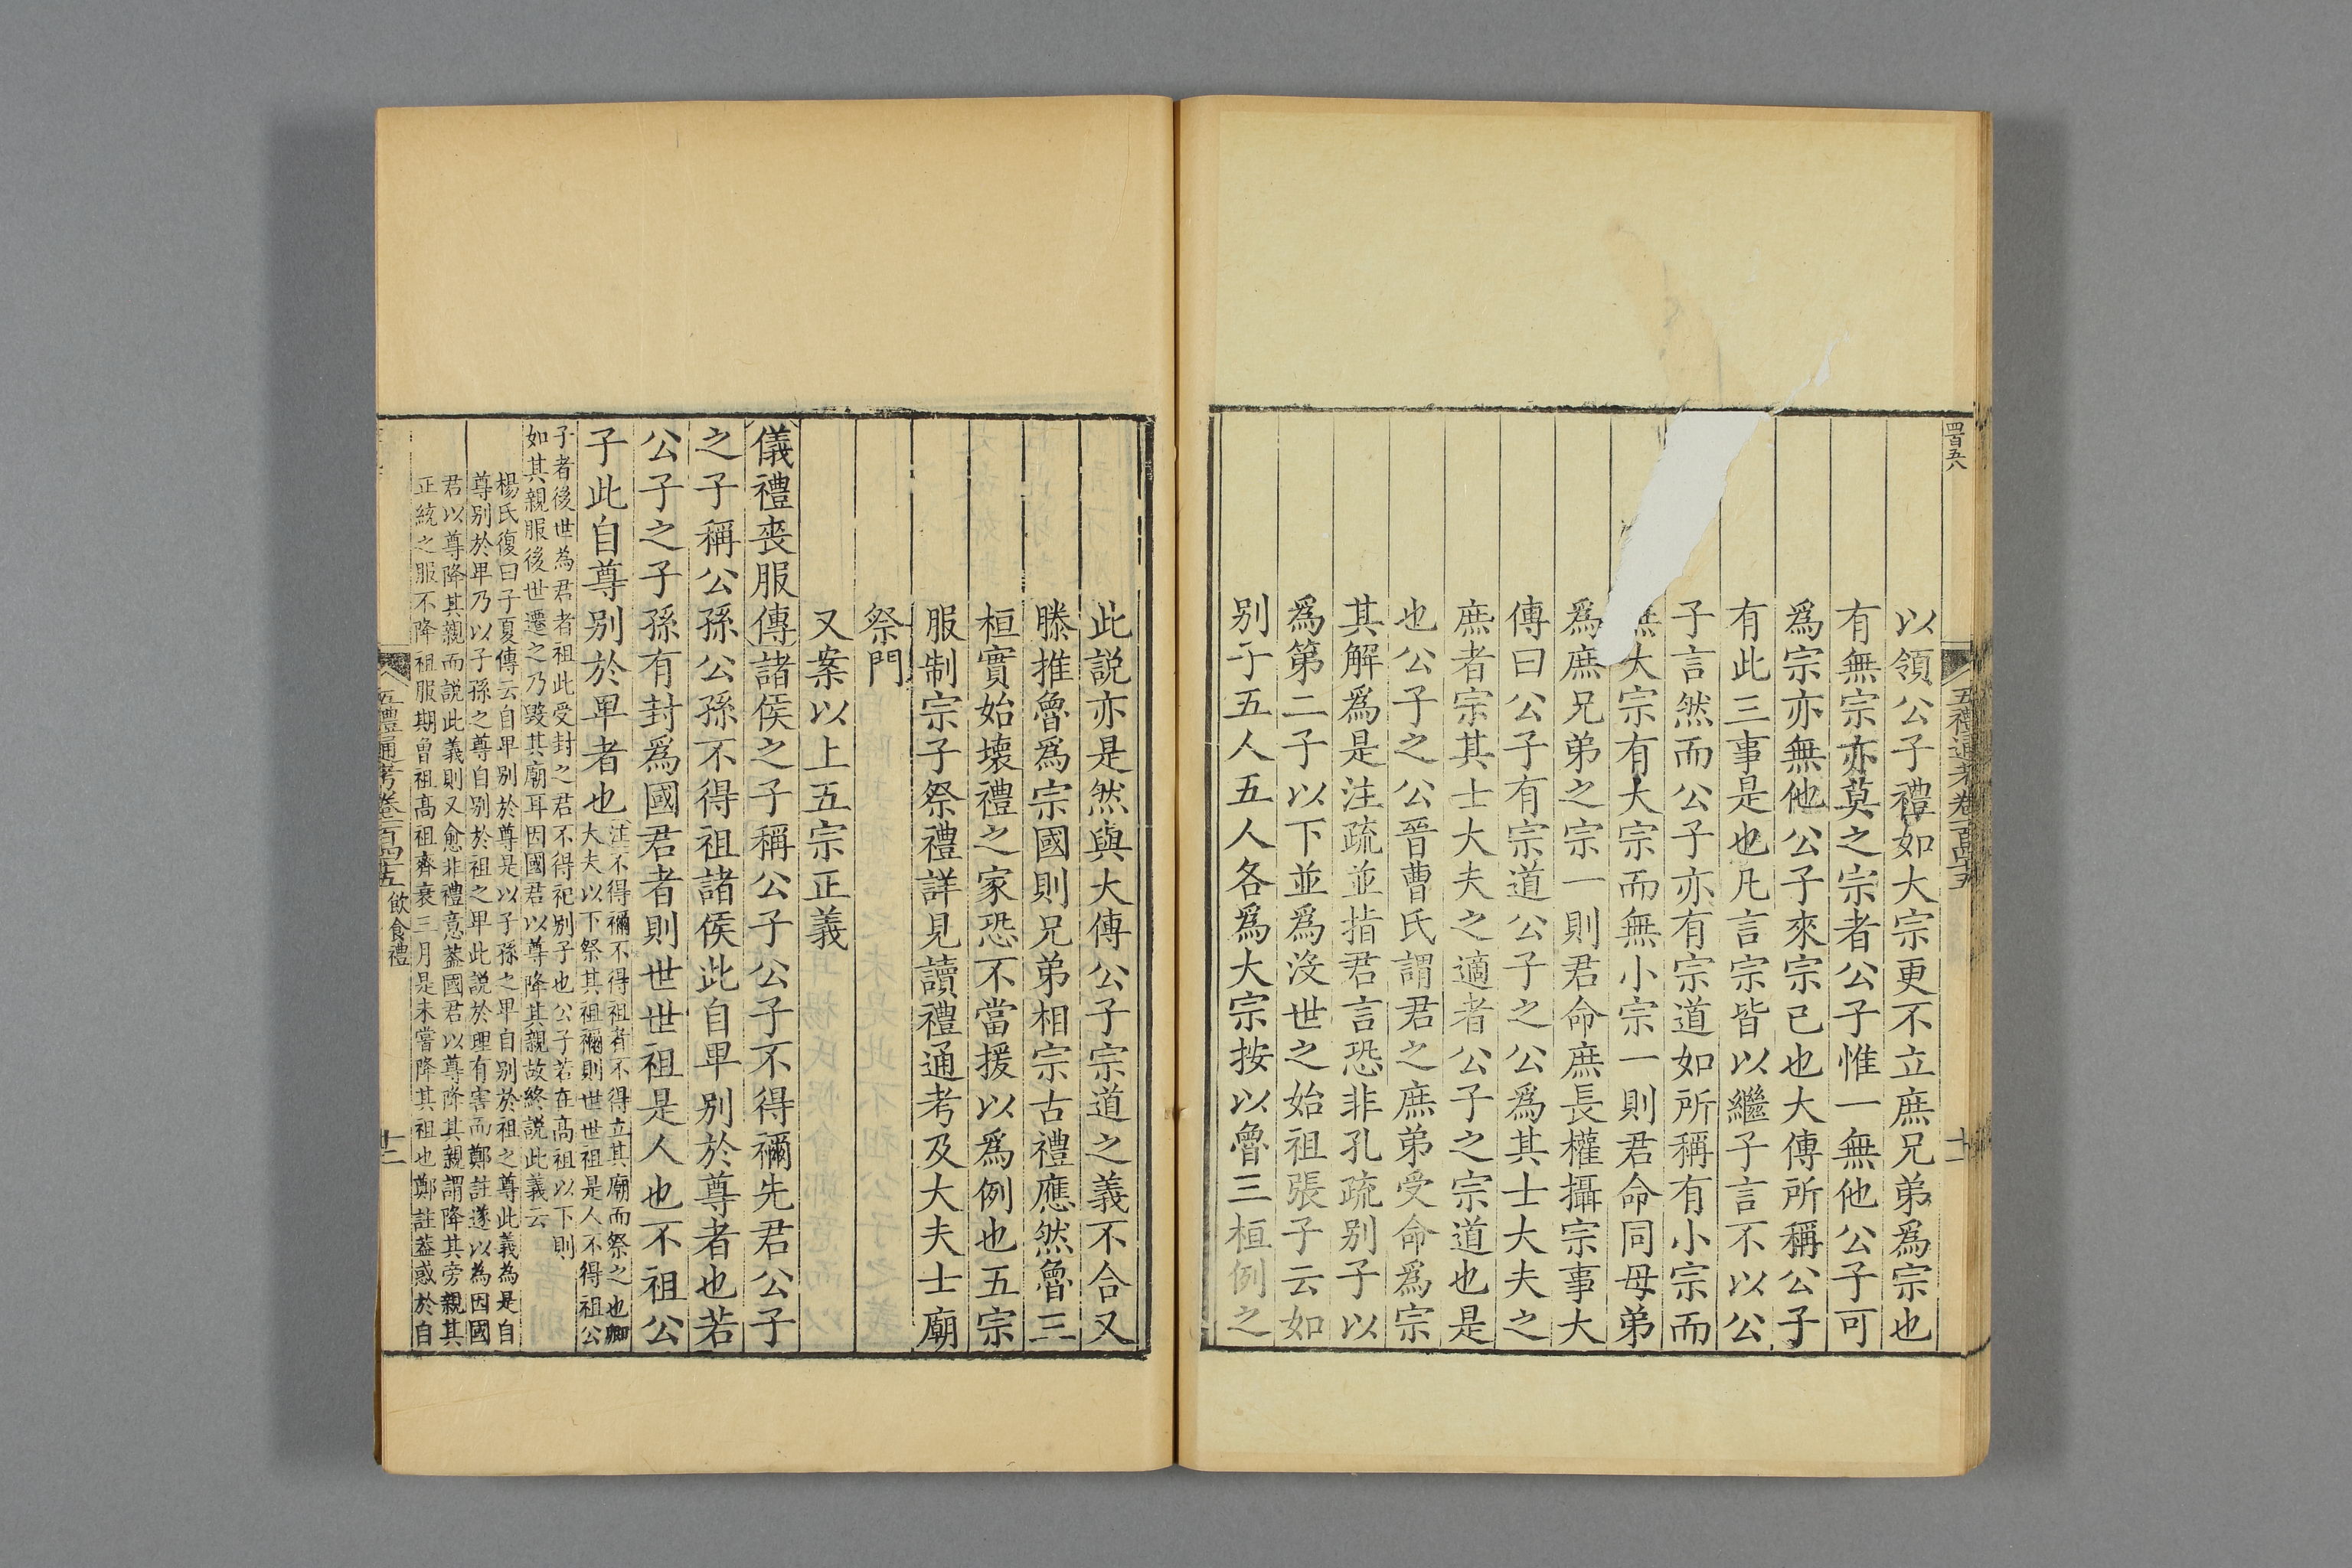 四百五八
五禮通考卷一百四十五
十一
以領公子禮如大宗更不立庶兄弟爲宗也
有無宗亦莫之宗者公子惟一無他公子可
爲宗亦無他公子來宗已也大傳所稱公子
有此三事是也凡言宗皆以繼子言不以公
子言然而公子亦有宗道如所稱有小宗而
無大宗有大宗而無小宗一則君命同母弟
爲庶兄弟之宗一則君命庶長權攝宗事大
傳曰公子有宗道公子之公爲其士大夫之
庶者宗其士大夫之適者公子之宗道也是
也公子之公晉曹氏謂君之庶弟受命爲宗
其解爲是注疏並指君言恐非孔疏別子以
爲第二子以下並爲沒世之始祖張子云如
別子五人五人各爲大宗按以魯三桓例之
此說亦是然與大傳公子宗道之義不合又
滕推魯爲宗國則兄弟相宗古禮應然魯三
桓實始壞禮之家恐不當援以爲例也五宗
服制宗子祭禮詳見讀禮通考及大夫士廟
祭門
又案以上五宗正義
儀禮喪服傳諸侯之子稱公子公子不得禰先君公子
之子稱公孫公孫不得祖諸侯此自卑別於尊者也若
公子之子孫有封爲國君者則世世祖是人也不祖公
子此自尊別於卑者也
注不得禰不得祖者不得立其廟而祭之也卿
大夫以下祭其祖禰則世世祖是人不得祖公
子者後世為君者祖此受封之君不得祀別子也公子若在高祖以下則
如其親服後世遷之乃毀其廟耳因國君以尊降其親故終說此義云
楊氏復曰子夏傳云自卑別於尊是以子孫之卑自別於祖之尊此義為是自
尊別於卑乃以子孫之尊自別於祖之卑此說於理有害而鄭註遂以為因國
君以尊降其親而說此義則又愈非禮意葢國君以尊降其親謂降其旁親其
正統之服不降祖服期曾祖高祖齊衰三月是未嘗降其祖也鄭註葢惑於自
五禮通考卷一百四十五 飲食禮
十二